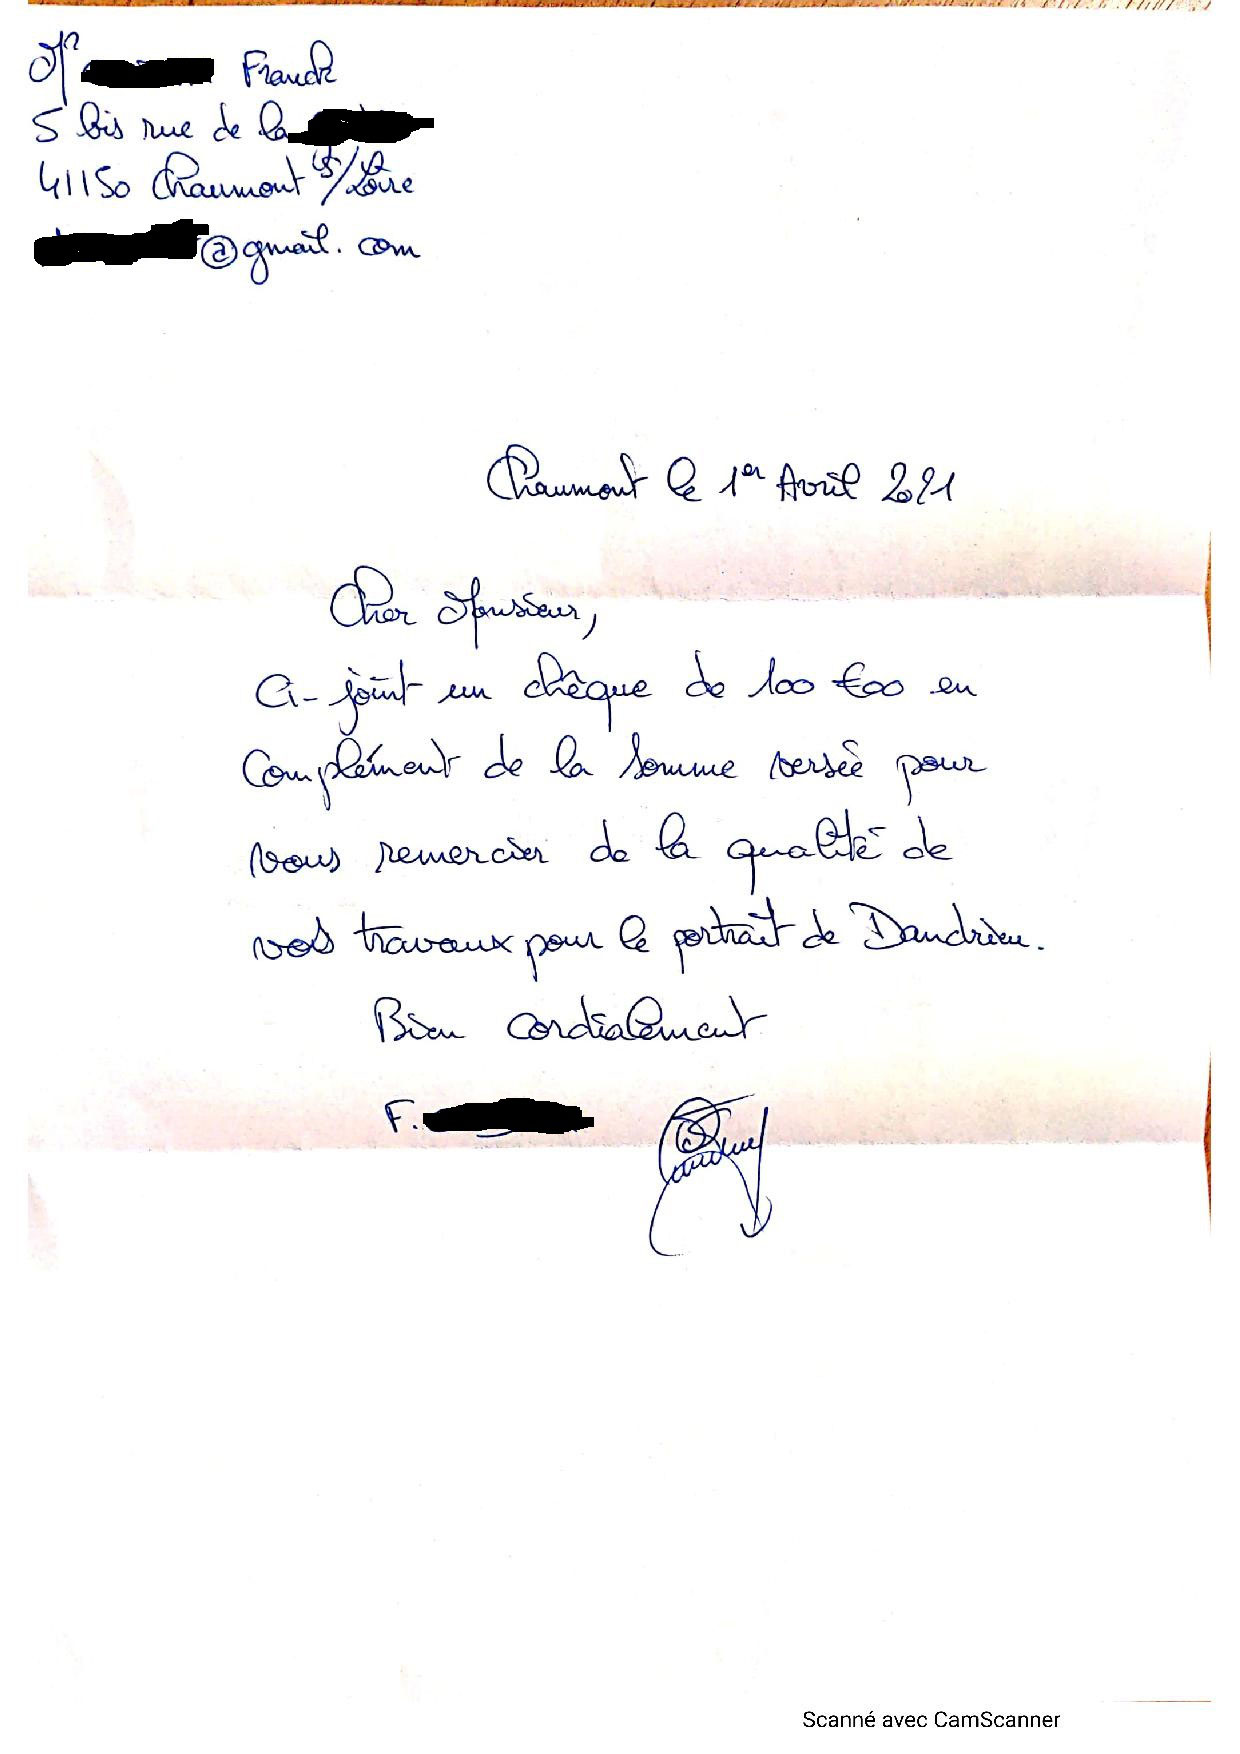 Mr Franck
5 bis rue de la
41150 Chaumont s/Loire
@gmail.com
Chaumont le 1er Avril 2021
Cher Monsieur,
Ci-joint un chèque de 100 €00 en
Complément de la somme versée pour
vous remercier de la qualité de
vos travaux pour le portrait de Dandrieu.
Bien cordialement
F.
Scanné avec CamScanner